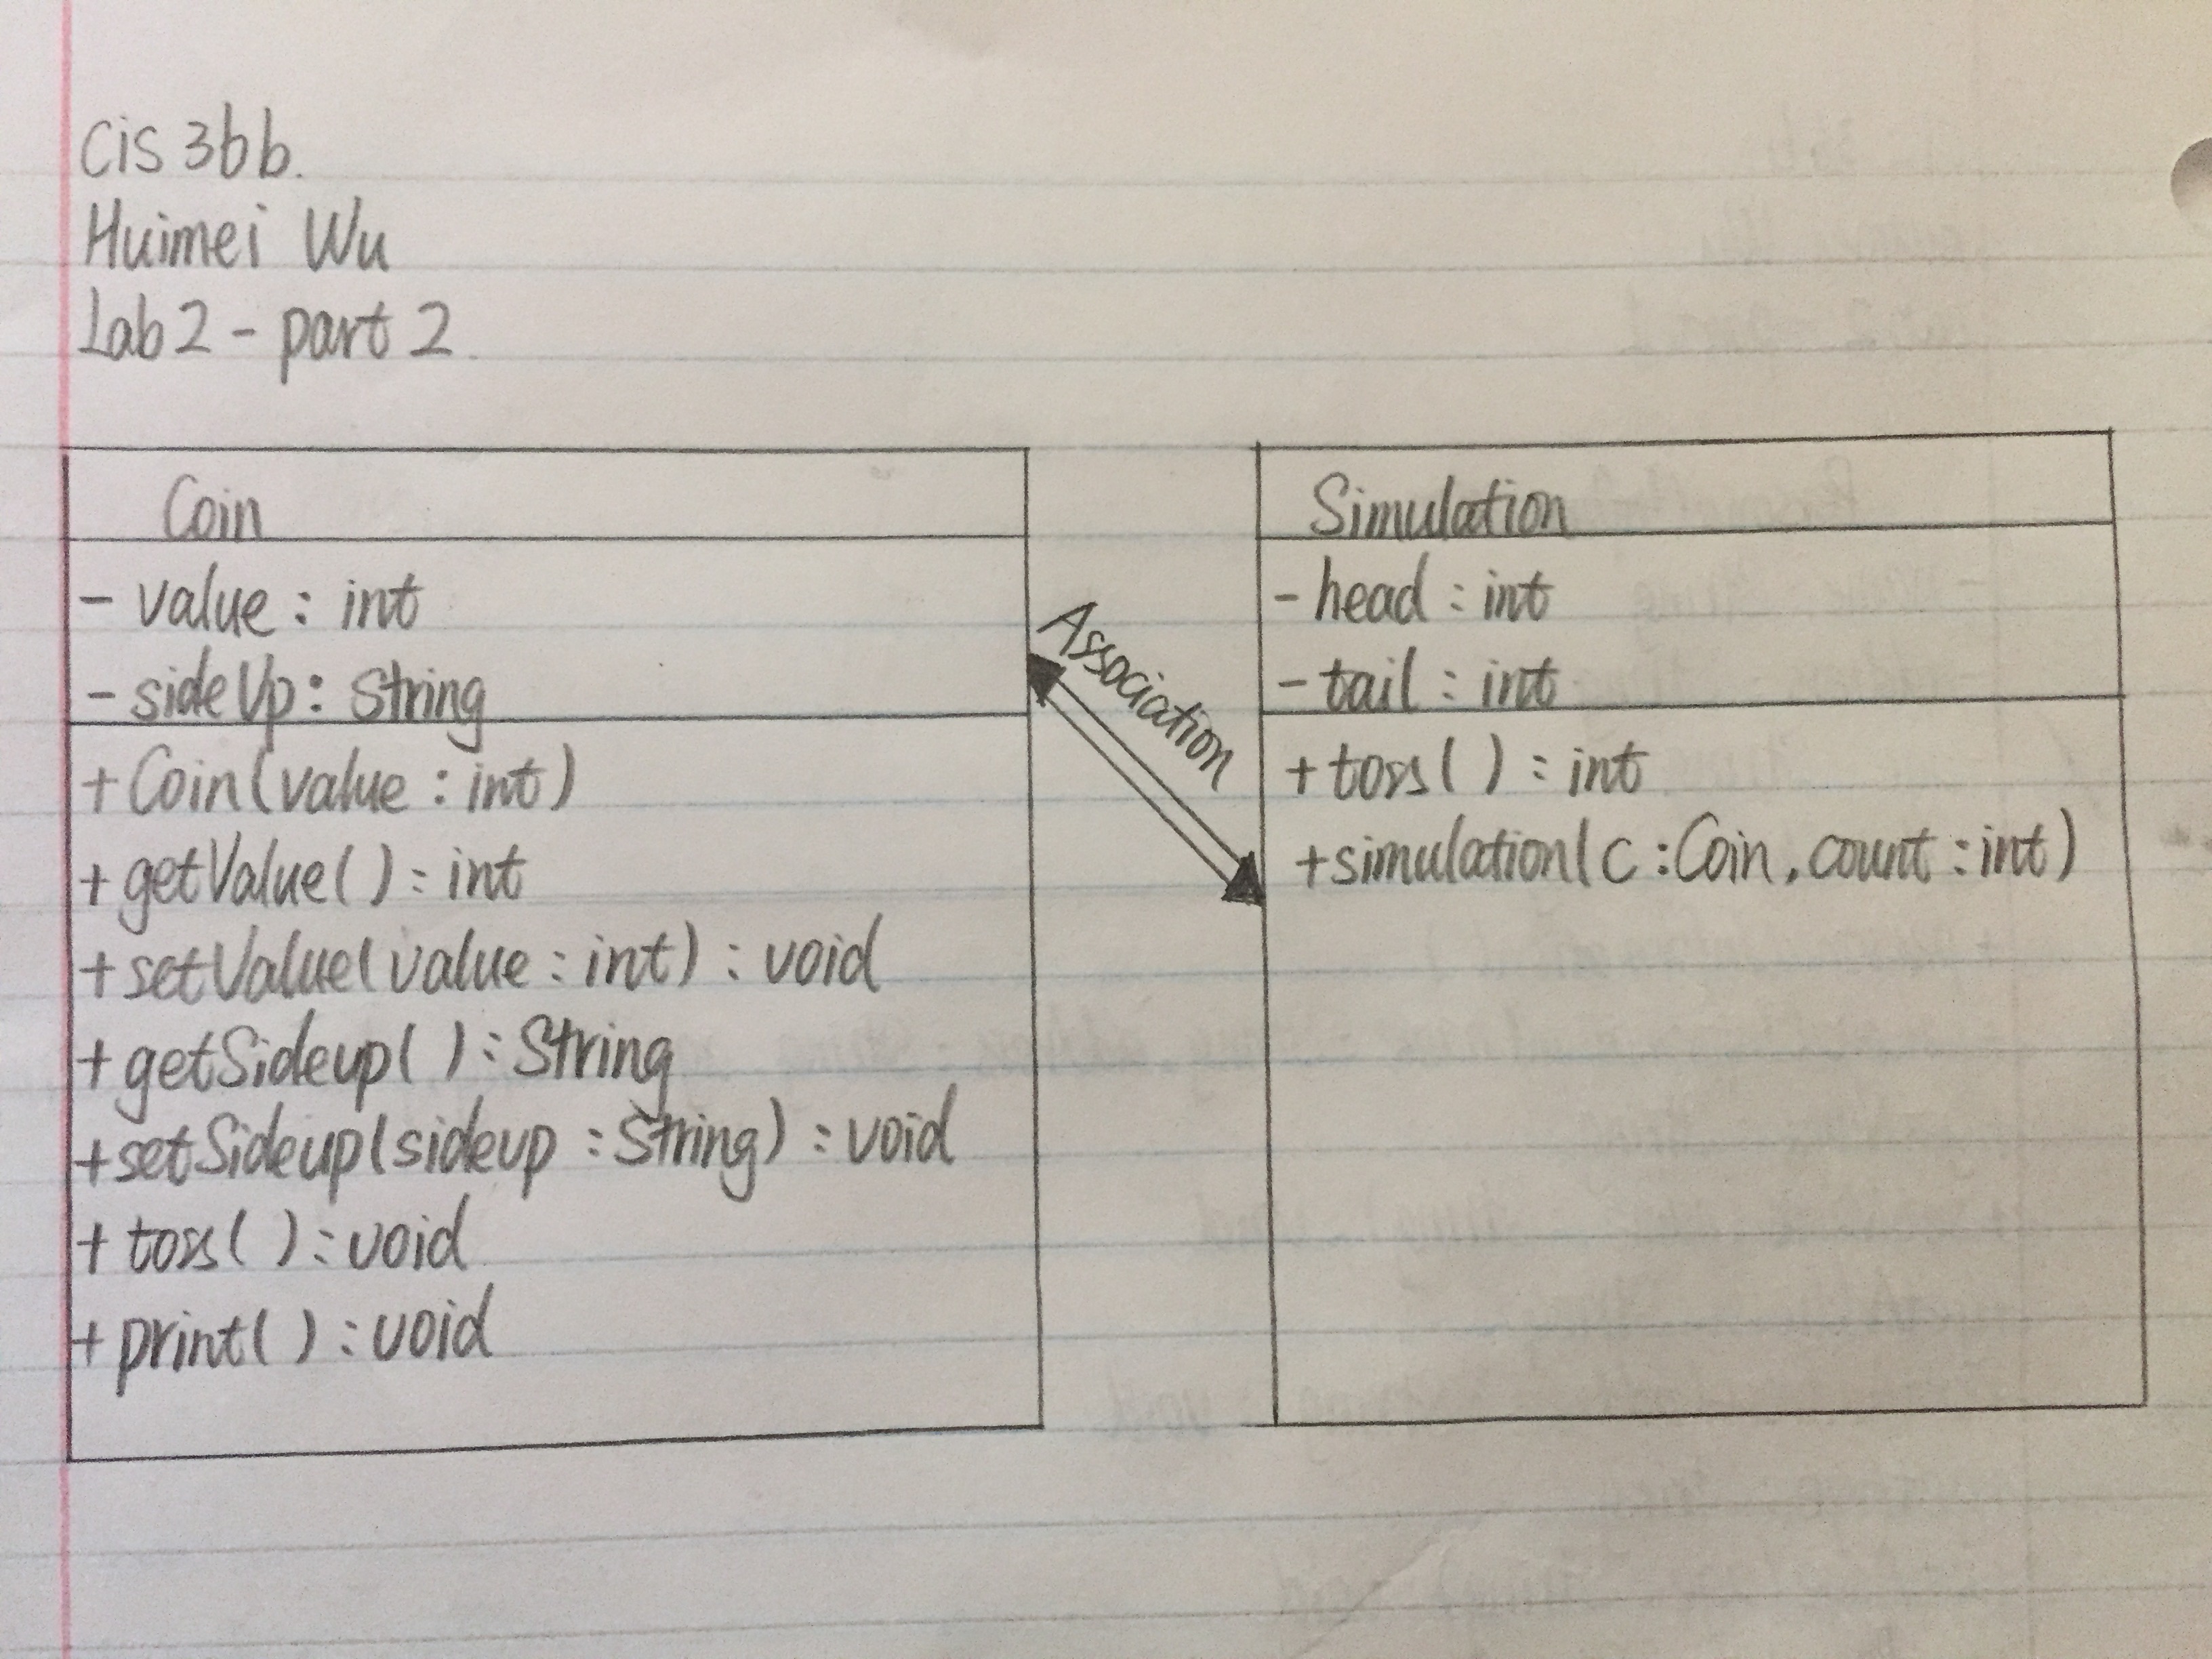 Cis 36b.
Huimei Wu
Lab 2 - part 2.
Coin
- value : int
- sideUp : String
+ Coin(value : int)
+ getValue( ) : int
+ setValue(value : int) : void
+ getSideup( ) : String
+ setSideup(sideup : String) : void
+ toss( ) : void
+ print( ) : void
Association
Simulation
- head : int
- tail : int
+ toss( ) : int
+ simulation(c : Coin, count : int)